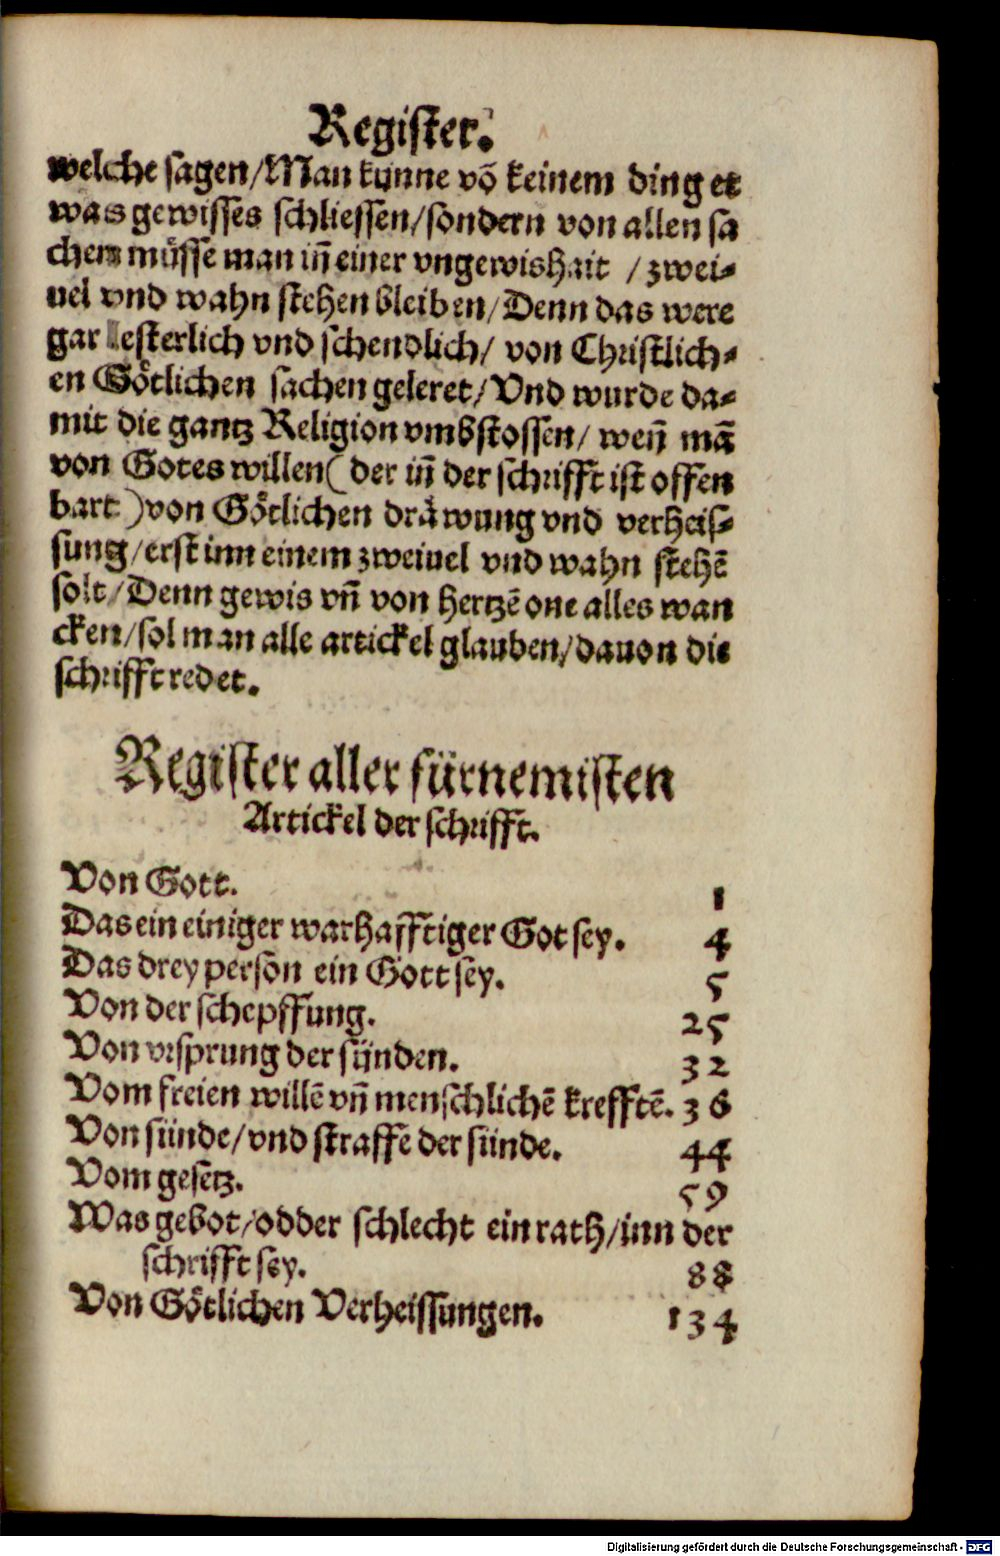 Register.
welche sagen/Man kunne võ keinem ding et
was gewisses schliessen/sondern von allen sa
chen müsse man iñ einer vngewishait / zwei⸗
uel vnd wahn stehen bleiben/Denn das were
gar lesterlich vnd schendlich/ von Christlich⸗
en Götlichen sachen geleret/Vnd wurde da⸗
mit die gantz Religion vmbstossen/ weñ mã
von Gotes willen(der iñ der schrifft ist offen
bart)von Götlichen dräwung vnd verheis⸗
sung/erst inn einem zweiuel vnd wahn stehẽ
solt/Denn gewis vñ von hertzẽ one alles wan
cken/sol man alle artickel glauben/dauon die
schrifft redet.
Register aller fürnemisten
Artickel der schrifft.
Von Gott. 1
Das ein einiger warhafftiger Got sey. 4
Das drey person ein Gott sey. 5
Von der schepffung. 25
Von vrsprung der sünden. 32
Vom freien willẽ vñ menschlichẽ krefftẽ. 36
Von sünde/vnd straffe der sünde. 44
Vom gesetz. 59
Was gebot/odder schlecht ein rath/inn der
schrifft sey. 88
Von Götlichen Verheissungen. 134
Digitalisierung gefördert durch die Deutsche Forschungsgemeinschaft - DFG